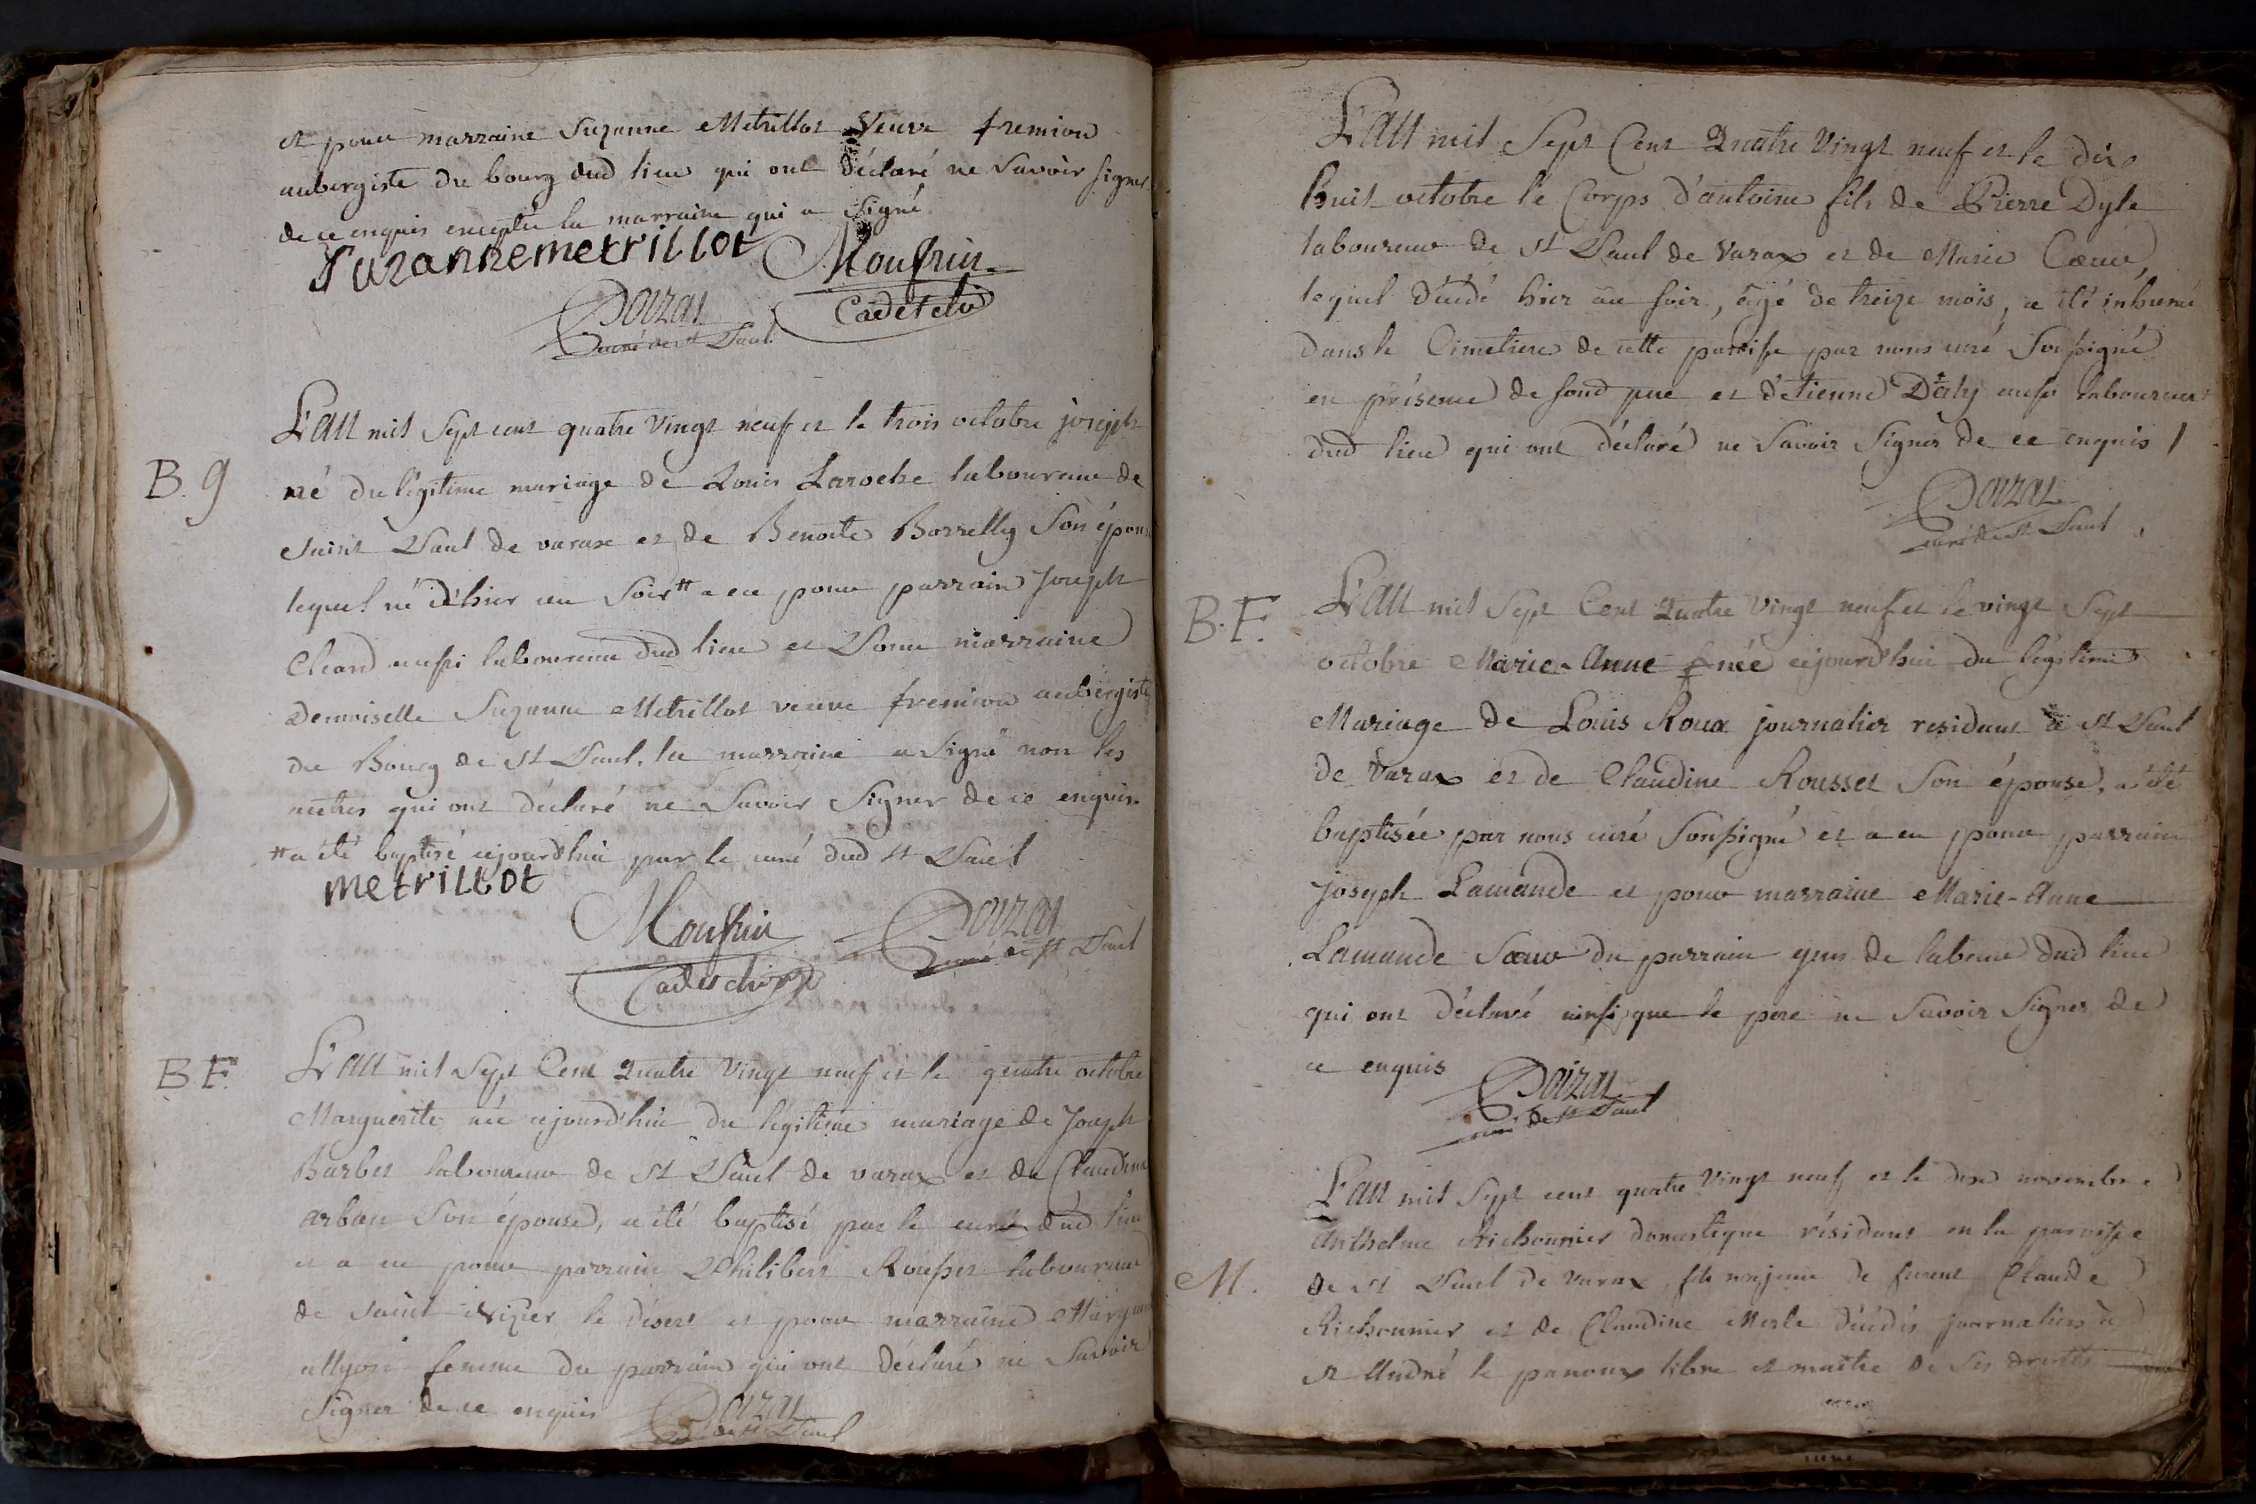 et pour marraine Suzanne Metrillot Veuve fremion
aubergiste du bourg dud lieu qui ont déclaré ne Savoir signer
de ce enquis excepté la marraine qui a Signé
Suzanne metrillot Monfrin
Cadet
curé de st Paul
L'an mil Sept cent quatre Vingt neuf et le trois octobre joseph
B. g né du légitime mariage de Louis Laroche laboureur de
Saint Paul de varax et de Benoite Borrelly Son épouse
lequel né d'hier au Soir # a eu pour parrain Joseph
Chard aussi laboureur dud lieu et Pour marraine
demoiselle Suzanne Metrillot veuve fremion aubergiste
du Bourg de St Paul. la marraine a Signé non les
autres qui ont déclaré ne Savoir Signer de ce enquis
# a été baptisé cejourd'hui par le curé dud St Paul
metrillot
Monfrin
curé de St Paul
B. F. L'an mil Sept Cent Quatre Vingt neuf et le quatre octobre
Marguerite née cejourd'hui du légitime mariage de Joseph
Barbet laboureur de St Paul de varax et de Claudine
arban Son épouse, a été baptisé par le curé dud lieu
et a eu pour parrain Philibert Rousset laboureur
de saint Nizier le désert et pour marraine
femme du parrain qui ont déclaré ne Savoir
Signer de ce enquis
de St Paul
L'an mil Sept Cent Quatre Vingt neuf et le dix
huit octobre le Corps d'antoine fils de Pierre Dyle
laboureur de St Paul de Varax et de Marie Cœur,
lequel décédé hier au soir, âgé de treize mois, a été inhumé
dans le Cimetiere de cette paroisse par nous curé Soussigné
en présence de sond pere et d'étienne aussi laboureur
dud lieu qui ont déclaré ne Savoir Signer de ce enquis /
curé de St Paul
B. F. L'an mil Sept Cent Quatre Vingt neuf et le vingt Sept
octobre Marie-Anne née cejourd'hui du légitime
Mariage de Louis Roux journalier residant à St Paul
de Varax et de Claudine Rousset Son épouse, a été
baptisée par nous curé Soussigné et a eu pour parrain
Joseph Lamande et pour marraine Marie-Anne
Lamande Sœur du parrain gens de labeur dud lieu
qui ont déclaré ainsi que le pere ne Savoir Signer de
ce enquis
curé de St Paul
L'an mil Sept cent quatre Vingt neuf et le dix novembre
Anthelme Richonnier domestique résidant en la paroisse
M. de St Paul de Varax, fils majeur de furent Claude
Richonnier et de Claudine Merle décédés journaliers à
St André le panoux libre et maitre de Ses droits